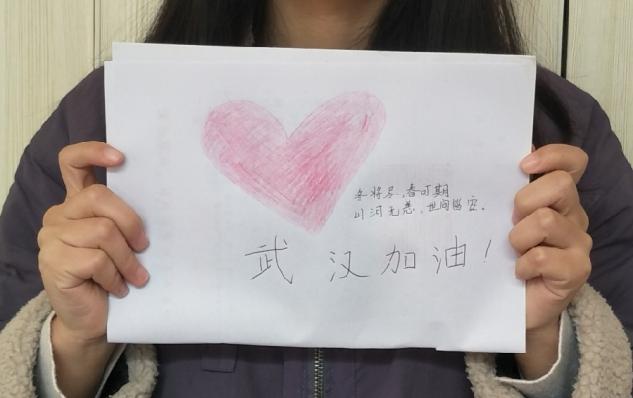 冬将尽，春可期
山河无恙，世间皆安。
武汉加油！